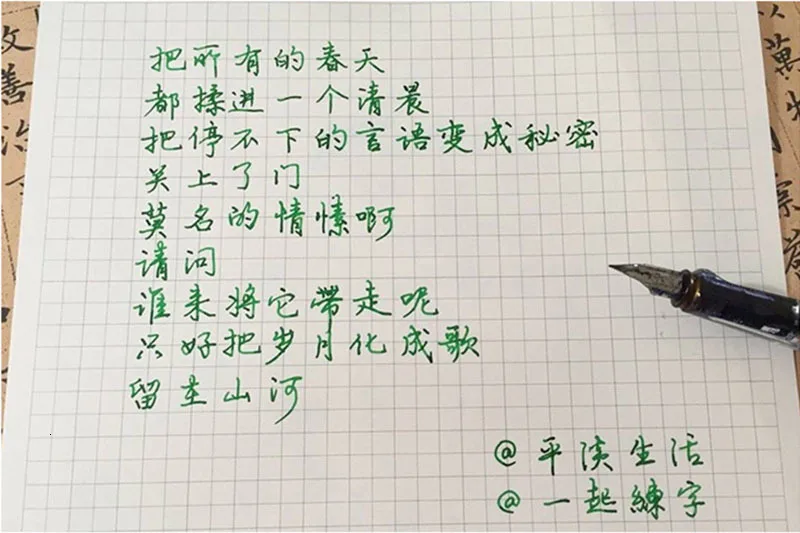 把所有的春天
都揉进一个清晨
把停不下的言语变成秘密
关上了门
莫名的情愫啊
请问
谁来将它带走呢
只好把岁月化成歌
留在山河
@平淡生活
@一起練字